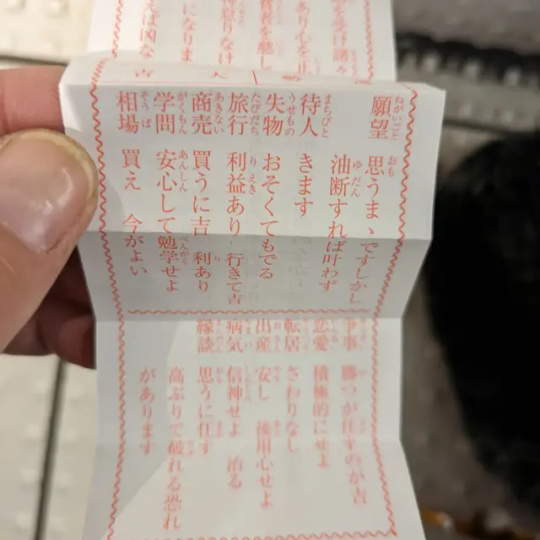 願望 思うまゝですしかし
油断すれば叶わず
待人 きます
失物 おそくてもでる
旅行 利益あり 行きて吉
商売 買うに吉 利あり
学問 安心して勉学せよ
相場 買え 今がよい
争事 勝つが任すのが吉
恋愛 積極的にせよ
転居 さわりなし
出産 安し 後用心せよ
病気 信神せよ 治る
縁談 思うに任す
高ぶりて破れる恐れ
があります